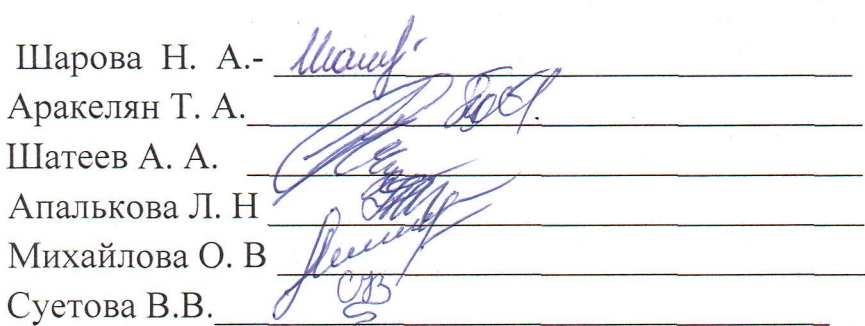 Шарова Н. А.-
Аракелян Т. А.
Шатеев А. А.
Апалькова Л. Н
Михайлова О. В
Суетова В.В.